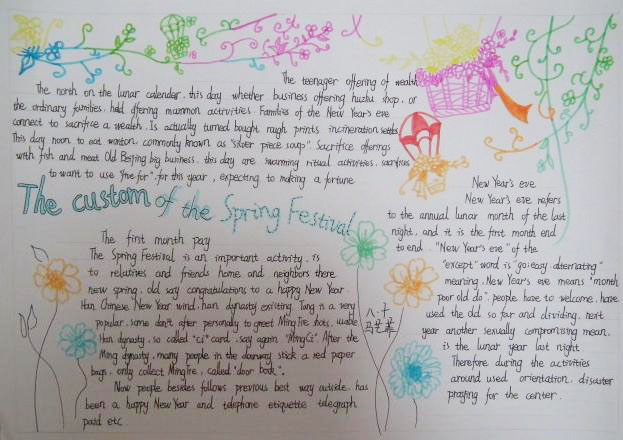 The teenager offering of wealth
The north on the lunar calendar. this day whether business offering huzhu shop, or
the ordinary families, hold offering mammon activities. Families of the New Year's eve
connect to sacrifice a wealth. Is actually turned bought rough prints incineration
This day noon to eat wonton, commonly known as "silver piece soup". Sacrifice offerings
with fish and meat Old Beijing big business, this day are swarming ritual activities, sacrifices
to want to use "five for" for this year, expecting to making a fortune
The custom of the Spring Festival
The first month pay
The Spring Festival is an important activity, is
to relatives and friends home and neighbors there
new spring, old say congratulations to a happy New Year.
Han Chinese New Year wind, han dynasty existing. Tang is a very
popular, some don't after personally to greet MingTie hots, usable
Han dynasty, so called "ci" card, say again "MingCi". After the
Ming dynasty, many people in the doorway stick a red paper
bags, only collect MingTie, called "door book".
Now people besides follows previous best way outside, has
been a happy New Year and telephone etiquette telegraph
paid etc.
New Year's eve
New Year's eve refers
to the annual lunar month of the last
night, and it is the first month end
to end. "New Year's eve" of the
"except" word is "go; easy alternating"
meaning. New Year's eve means "month
poor old do". people have to welcome, have
used the old so far and dividing, next
year another sexually compromising mean,
is the lunar year last night.
Therefore during the activities
around used orientation, disaster
praying for the center.
八、十